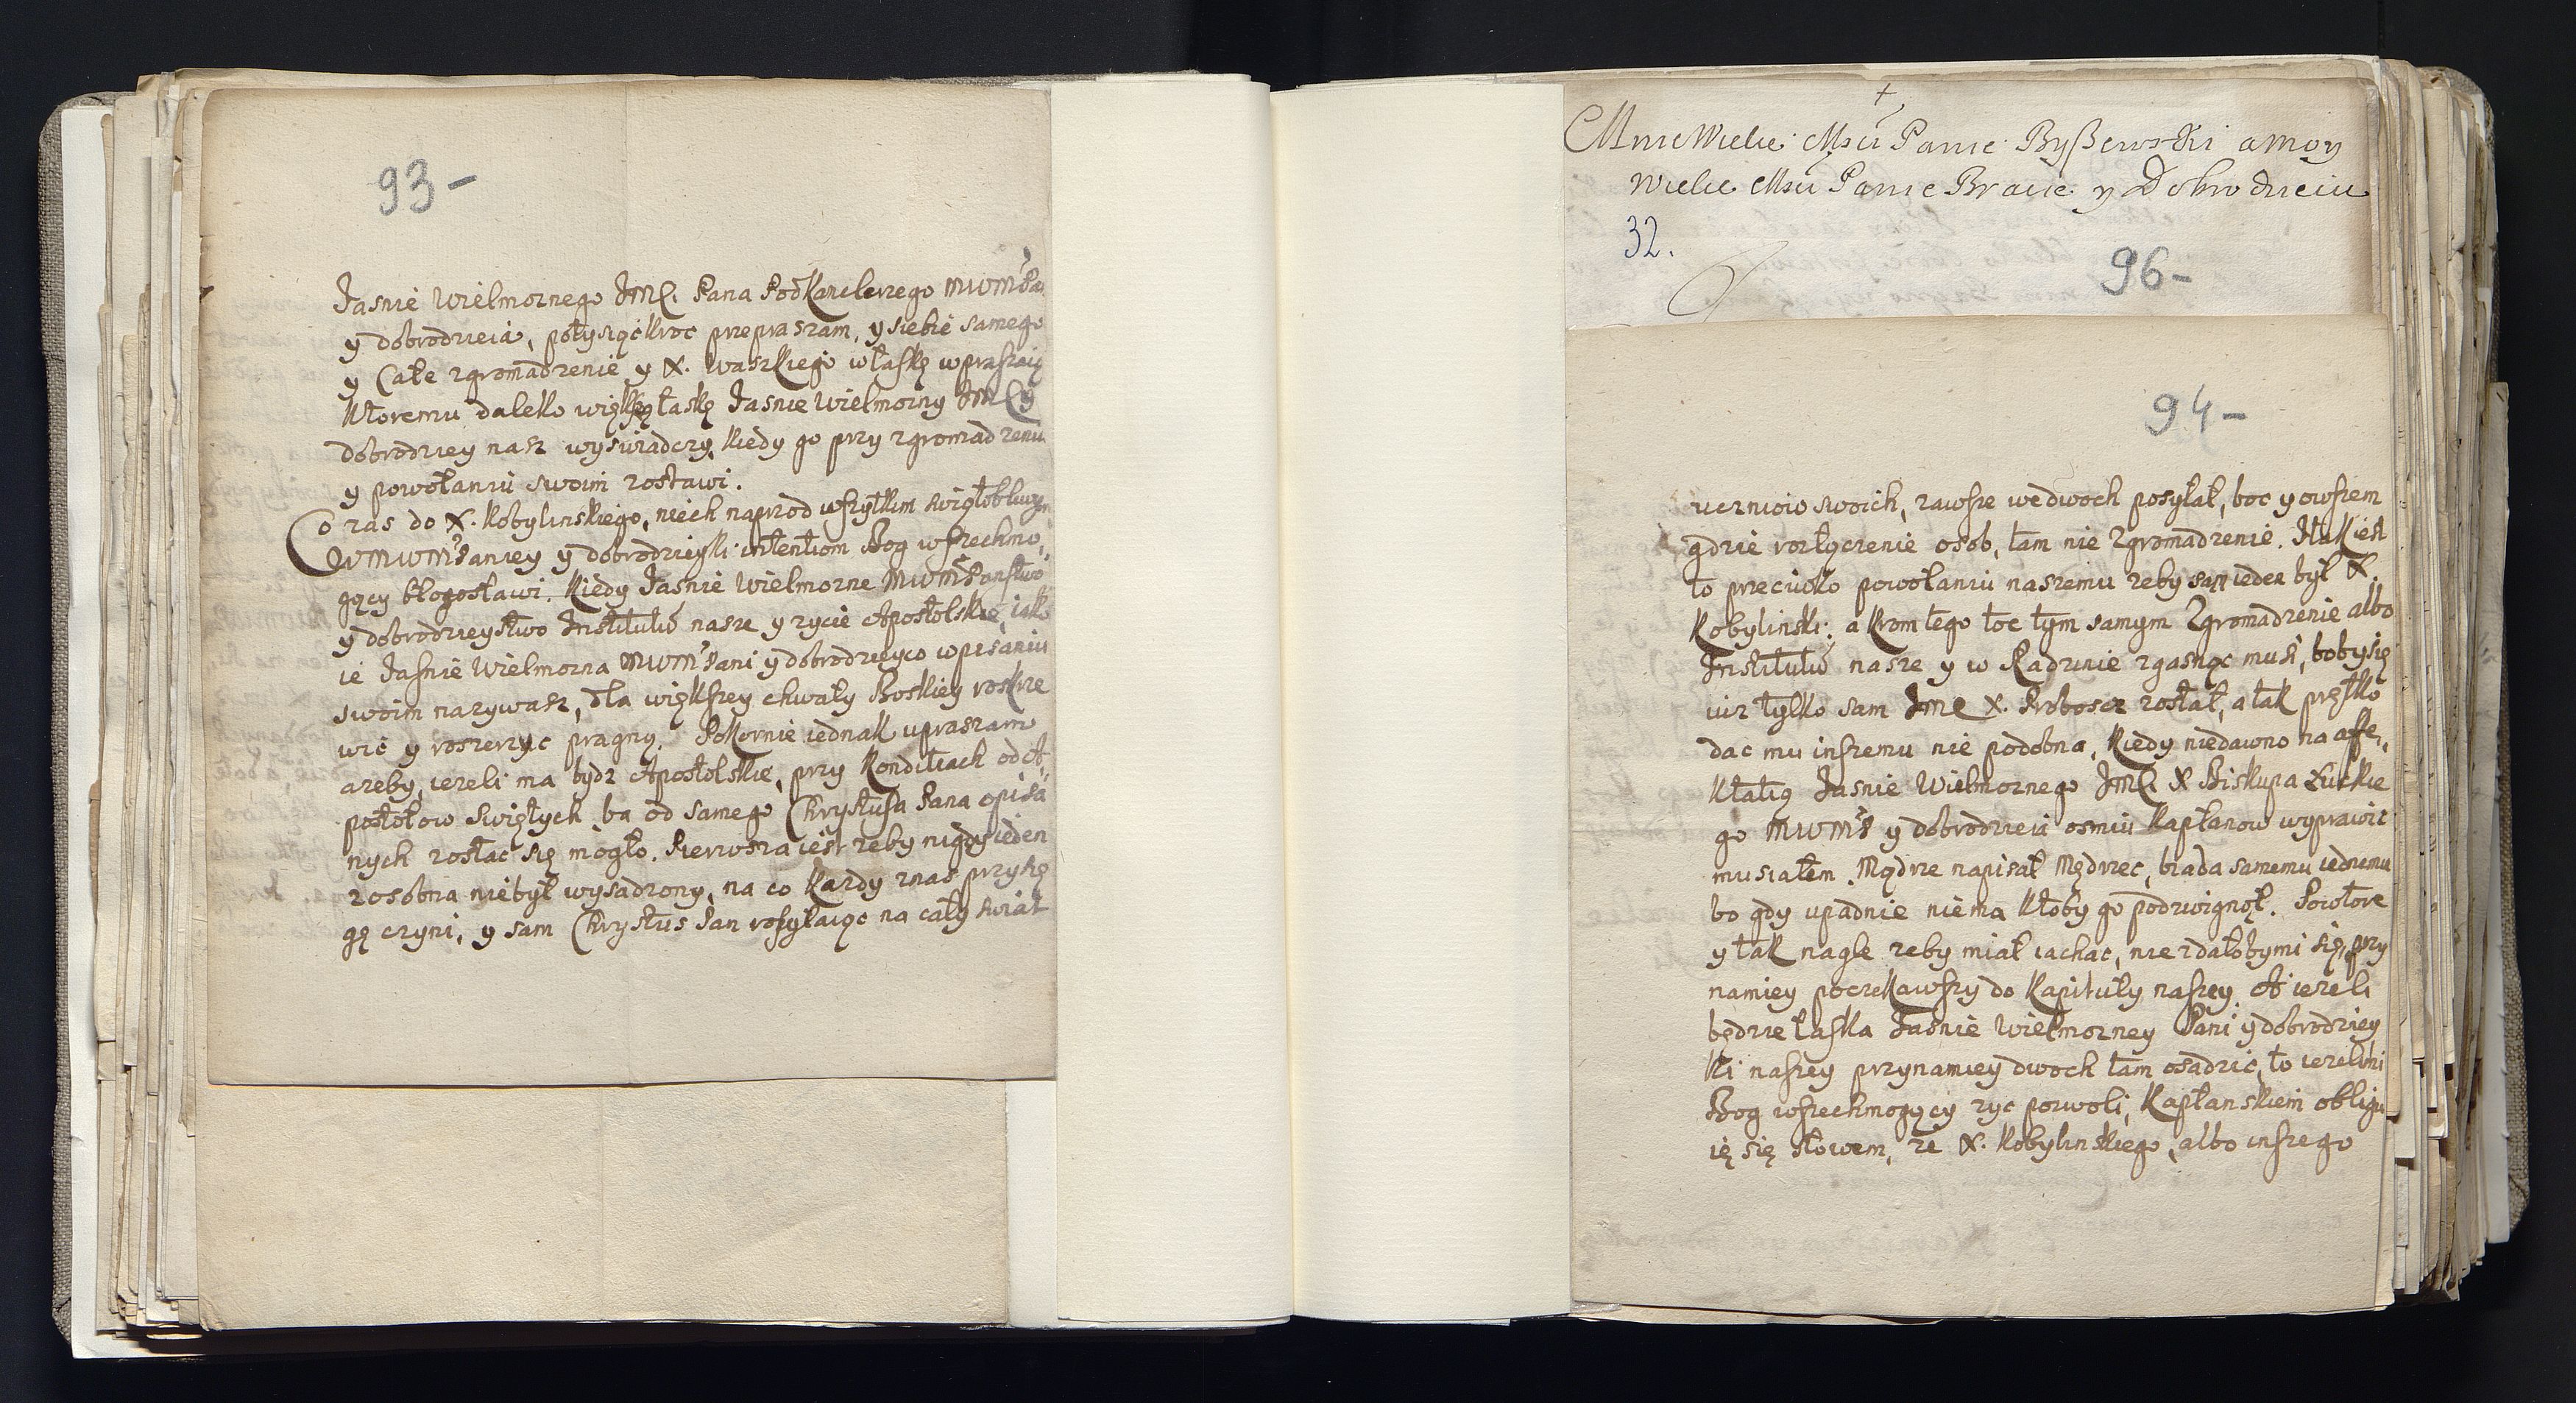 93-
Jasnie Wielmoznego JMC. Pana Podkanclerzego MWMPa
y dobrodzieia, potysiąckroc przepraszam, y siebie samego
y Całe zgromadzenie y X. Waszkiego właskę wpraszaię
Ktoremu daleko większę łaskę Jasnie Wielmozny JMC y
dobrodziey nasz wyswiadczy, kiedy go przy zgromadzeniu
y powołaniu swoim zostawi.
Co zas do X. Kobylinskiego, niech naprzod wszytkim swiętobliwym
WMWMPaniey y dobrodzieyki intentiom Bog wszechmo,
gący błogosławi. Kiedy Jasnie Wielmozne MWMPanstwo
y dobrodzieystwo Institutū nasze y zycie Apostolskie, iako
ie Jasnie Wielmozna MWMPani y dobrodzieyco wpisaniu
swoim nazywasz, dla większey chwały Boskiey roskrze
wic y roszerzyc pragną. Pokornie iednak upraszam
azeby, iezeli ma bydz Apostolskie, przy Konditiach od A,
postołow Swiętych, ba od samego Chrystusa Pana opisa
nych zostac się mogło. Pierwsza iest zeby nigdy ieden
zosobna niebył wysadzony, na co kazdy znas przysię
gę czyni, y sam Chrystus Pan rosyłaiąc na cały swiat
+
Mnie Wielce Msci Panie Byszewski a moy
Wielce Msci Panie Bracie y Dobrodzieiu
32.
96-
94-
uczniow swoich, zawsze wedwoch posyłał, boc y owszem
gdzie rozłączenie osob, tam nie Zgromadzenie. Itak iest
to przeciwko powołaniu naszemu zeby sam ieden był X.
Kobylinski; a krom tego toc tym samym Zgromadzenie albo
Institutū nasze y w Radzinie zgasnąc musi, boby się
iuz tylko sam Jme X. Proboscz został, a tak prętko
dac mu inszemu nie podobna, Kiedy niedawno na affe,
ktatią Jasnie Wielmoznego JMC X Biskupa Łuckie
go MWMP y dobrodzieia osmiu Kapłanow wyprawic
musiałem. Mądrze napisał Mędrzec, biada samemu iednemu
bo gdy upadnie niema ktoby go podzwignął. Powtore
y tak nagle zeby miał iachac, nie zdałoby mi się, przy
namiey poczekawszy do Kapituły naszey. A iezeli
będzie łaska Jasnie Wielmozney Pani y dobrodziey
ki naszey przynamiey dwoch tam osadzic, to iezelimi
Bog wszechmogący zyc pozwoli, Kapłanskiem obligu
ię się słowem, ze X. Kobylinskiego, albo inszego